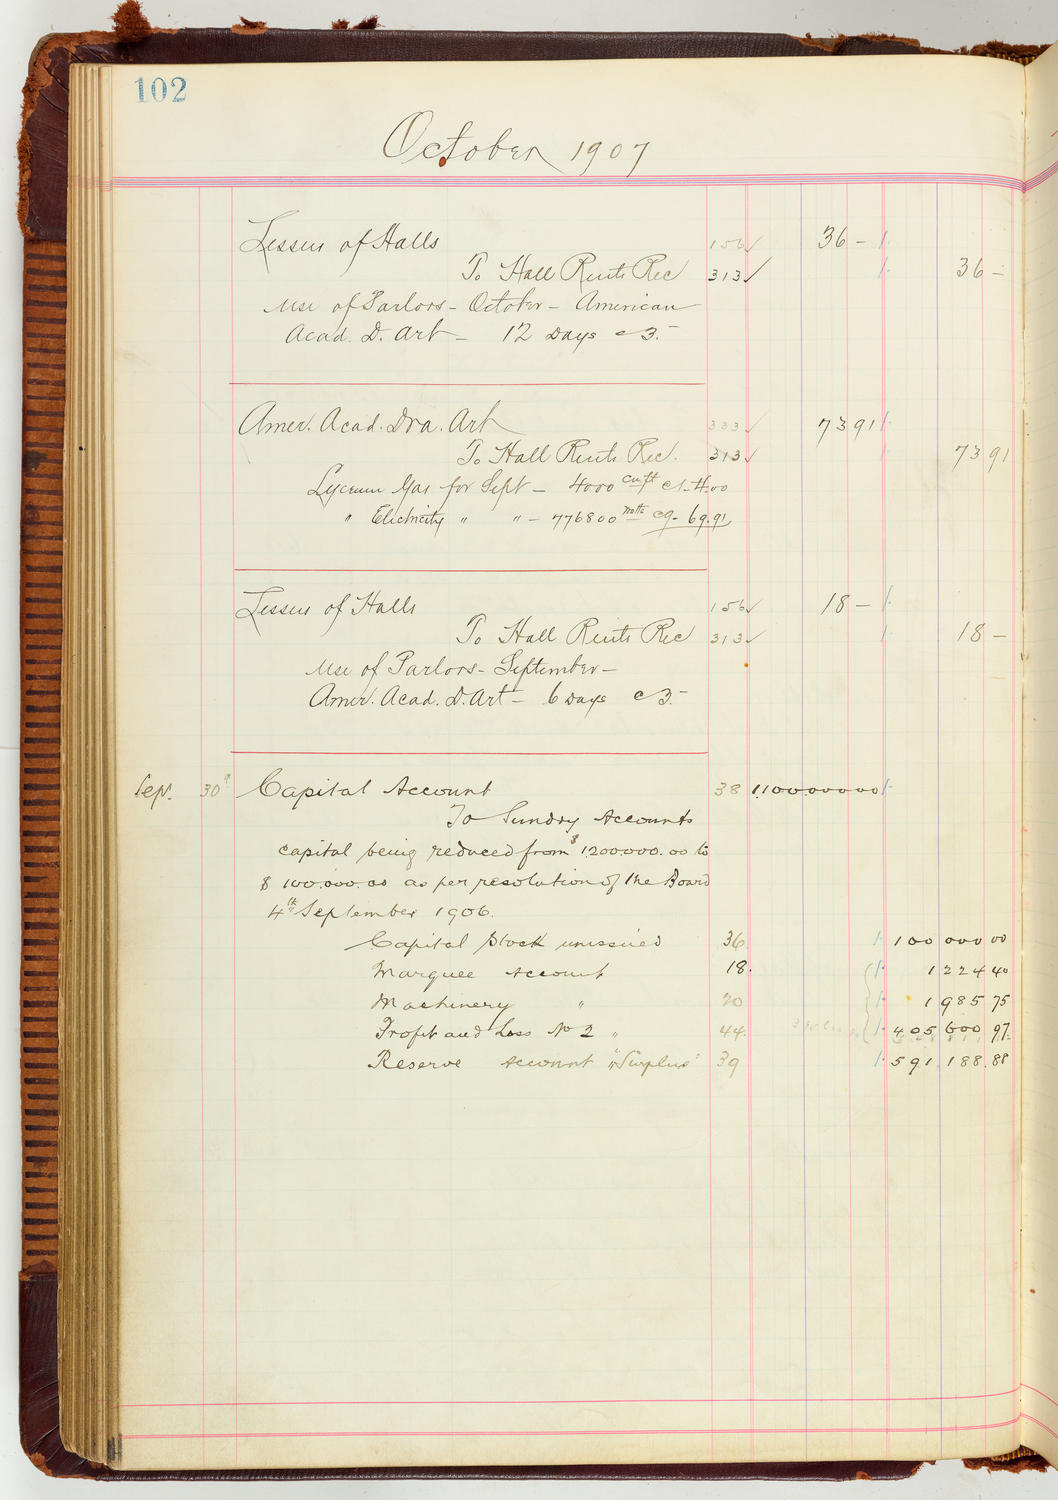 102
October 1907
Lessees of Halls 156 ✓ 36 –
To Hall Rents Rec 313 ✓ 36 –
Use of Parlors – October – American
Acad. D. Art – 12 Days @ 3.–
Amer. Acad. Dra. Art 333 ✓ 73 91
To Hall Rents Rec. 313 ✓ 73 91
Lyceum Gas for Sept – 4000 cu ft @ 1 – 4.00
" Electricity " " – 776800 watts @ 9 – 69.91
Lessees of Halls 156 ✓ 18 –
To Hall Rents Rec 313 ✓ 18 –
Use of Parlors – September –
Amer. Acad. D. Art – 6 Days @ 3.–
Sep. 30 Capital Account 38 1,100,000 00
To Sundry Accounts
capital being reduced from $1,200,000.00 to
$100,000.00 as per resolution of the Board
4th September 1906.
Capital Stock unissued 36 100 000 00
Marquee Account 18. 1 224 40
Machinery " 20 1 985 75
Profit and Loss No 2 " 44. 405 600 97
Reserve Account "Surplus" 39 591 188.88